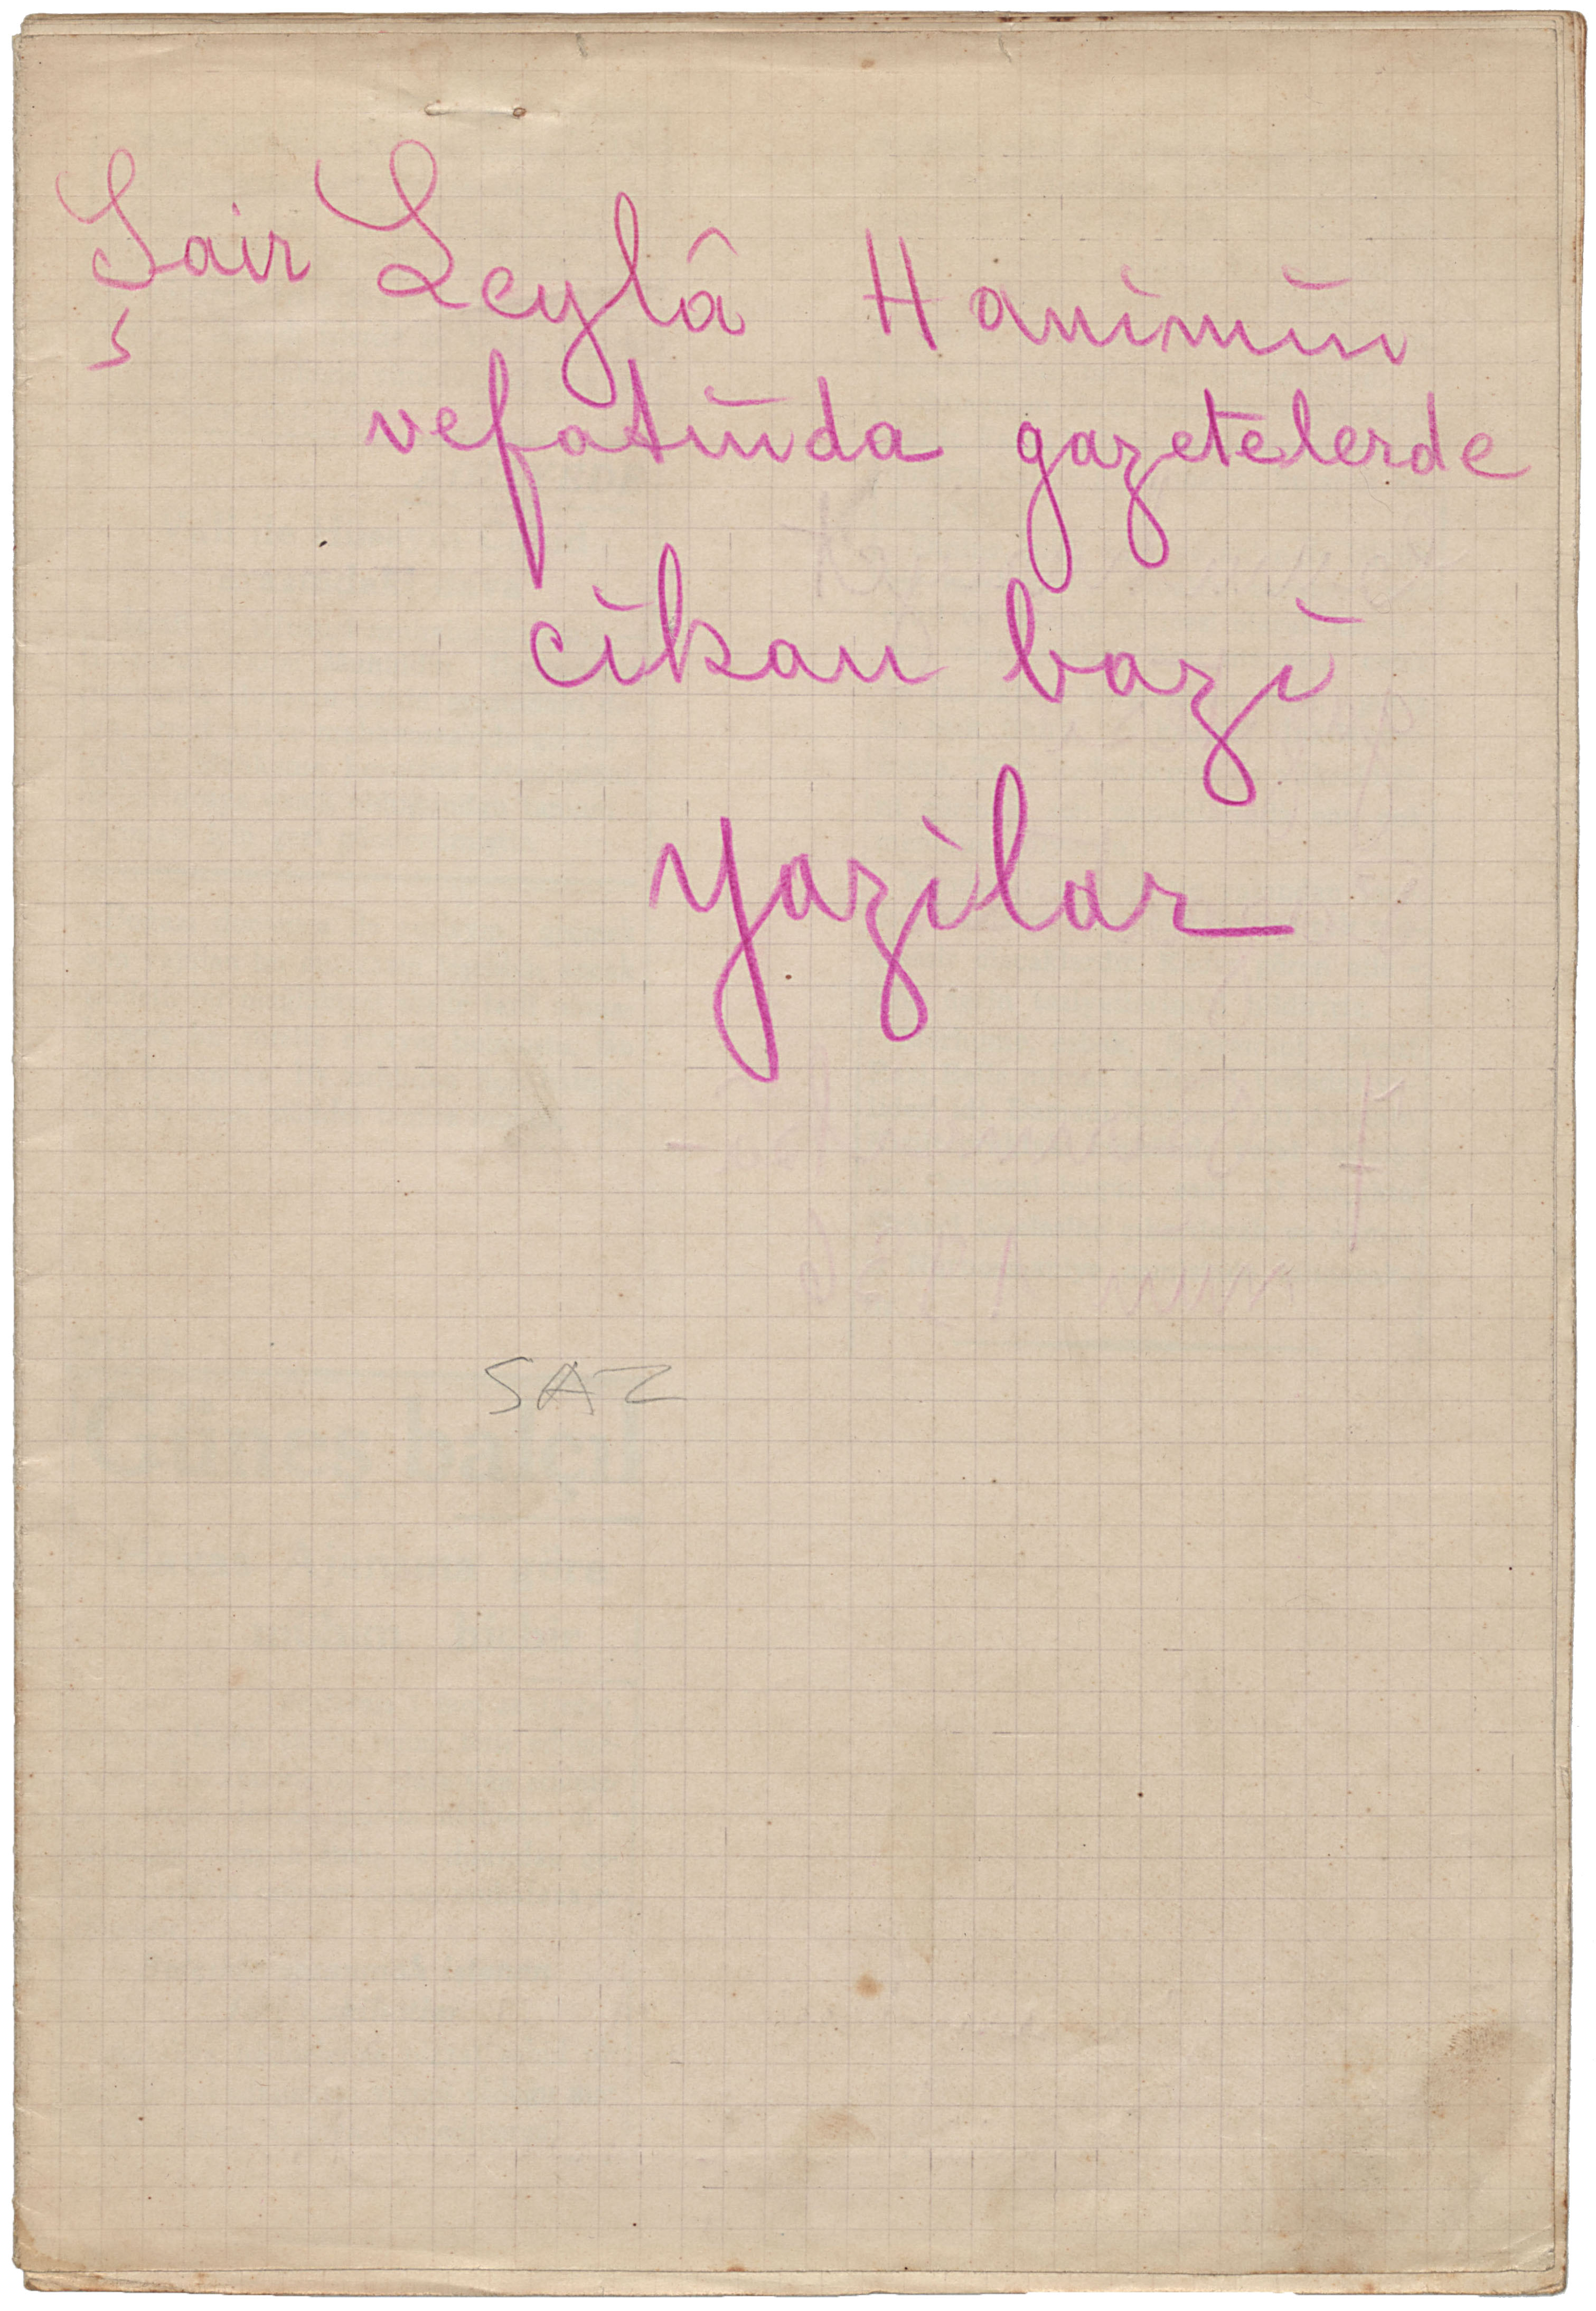 Şair Leylâ Hanımın
vefatında gazetelerde
cıkan bazı
yazılar
SAZ